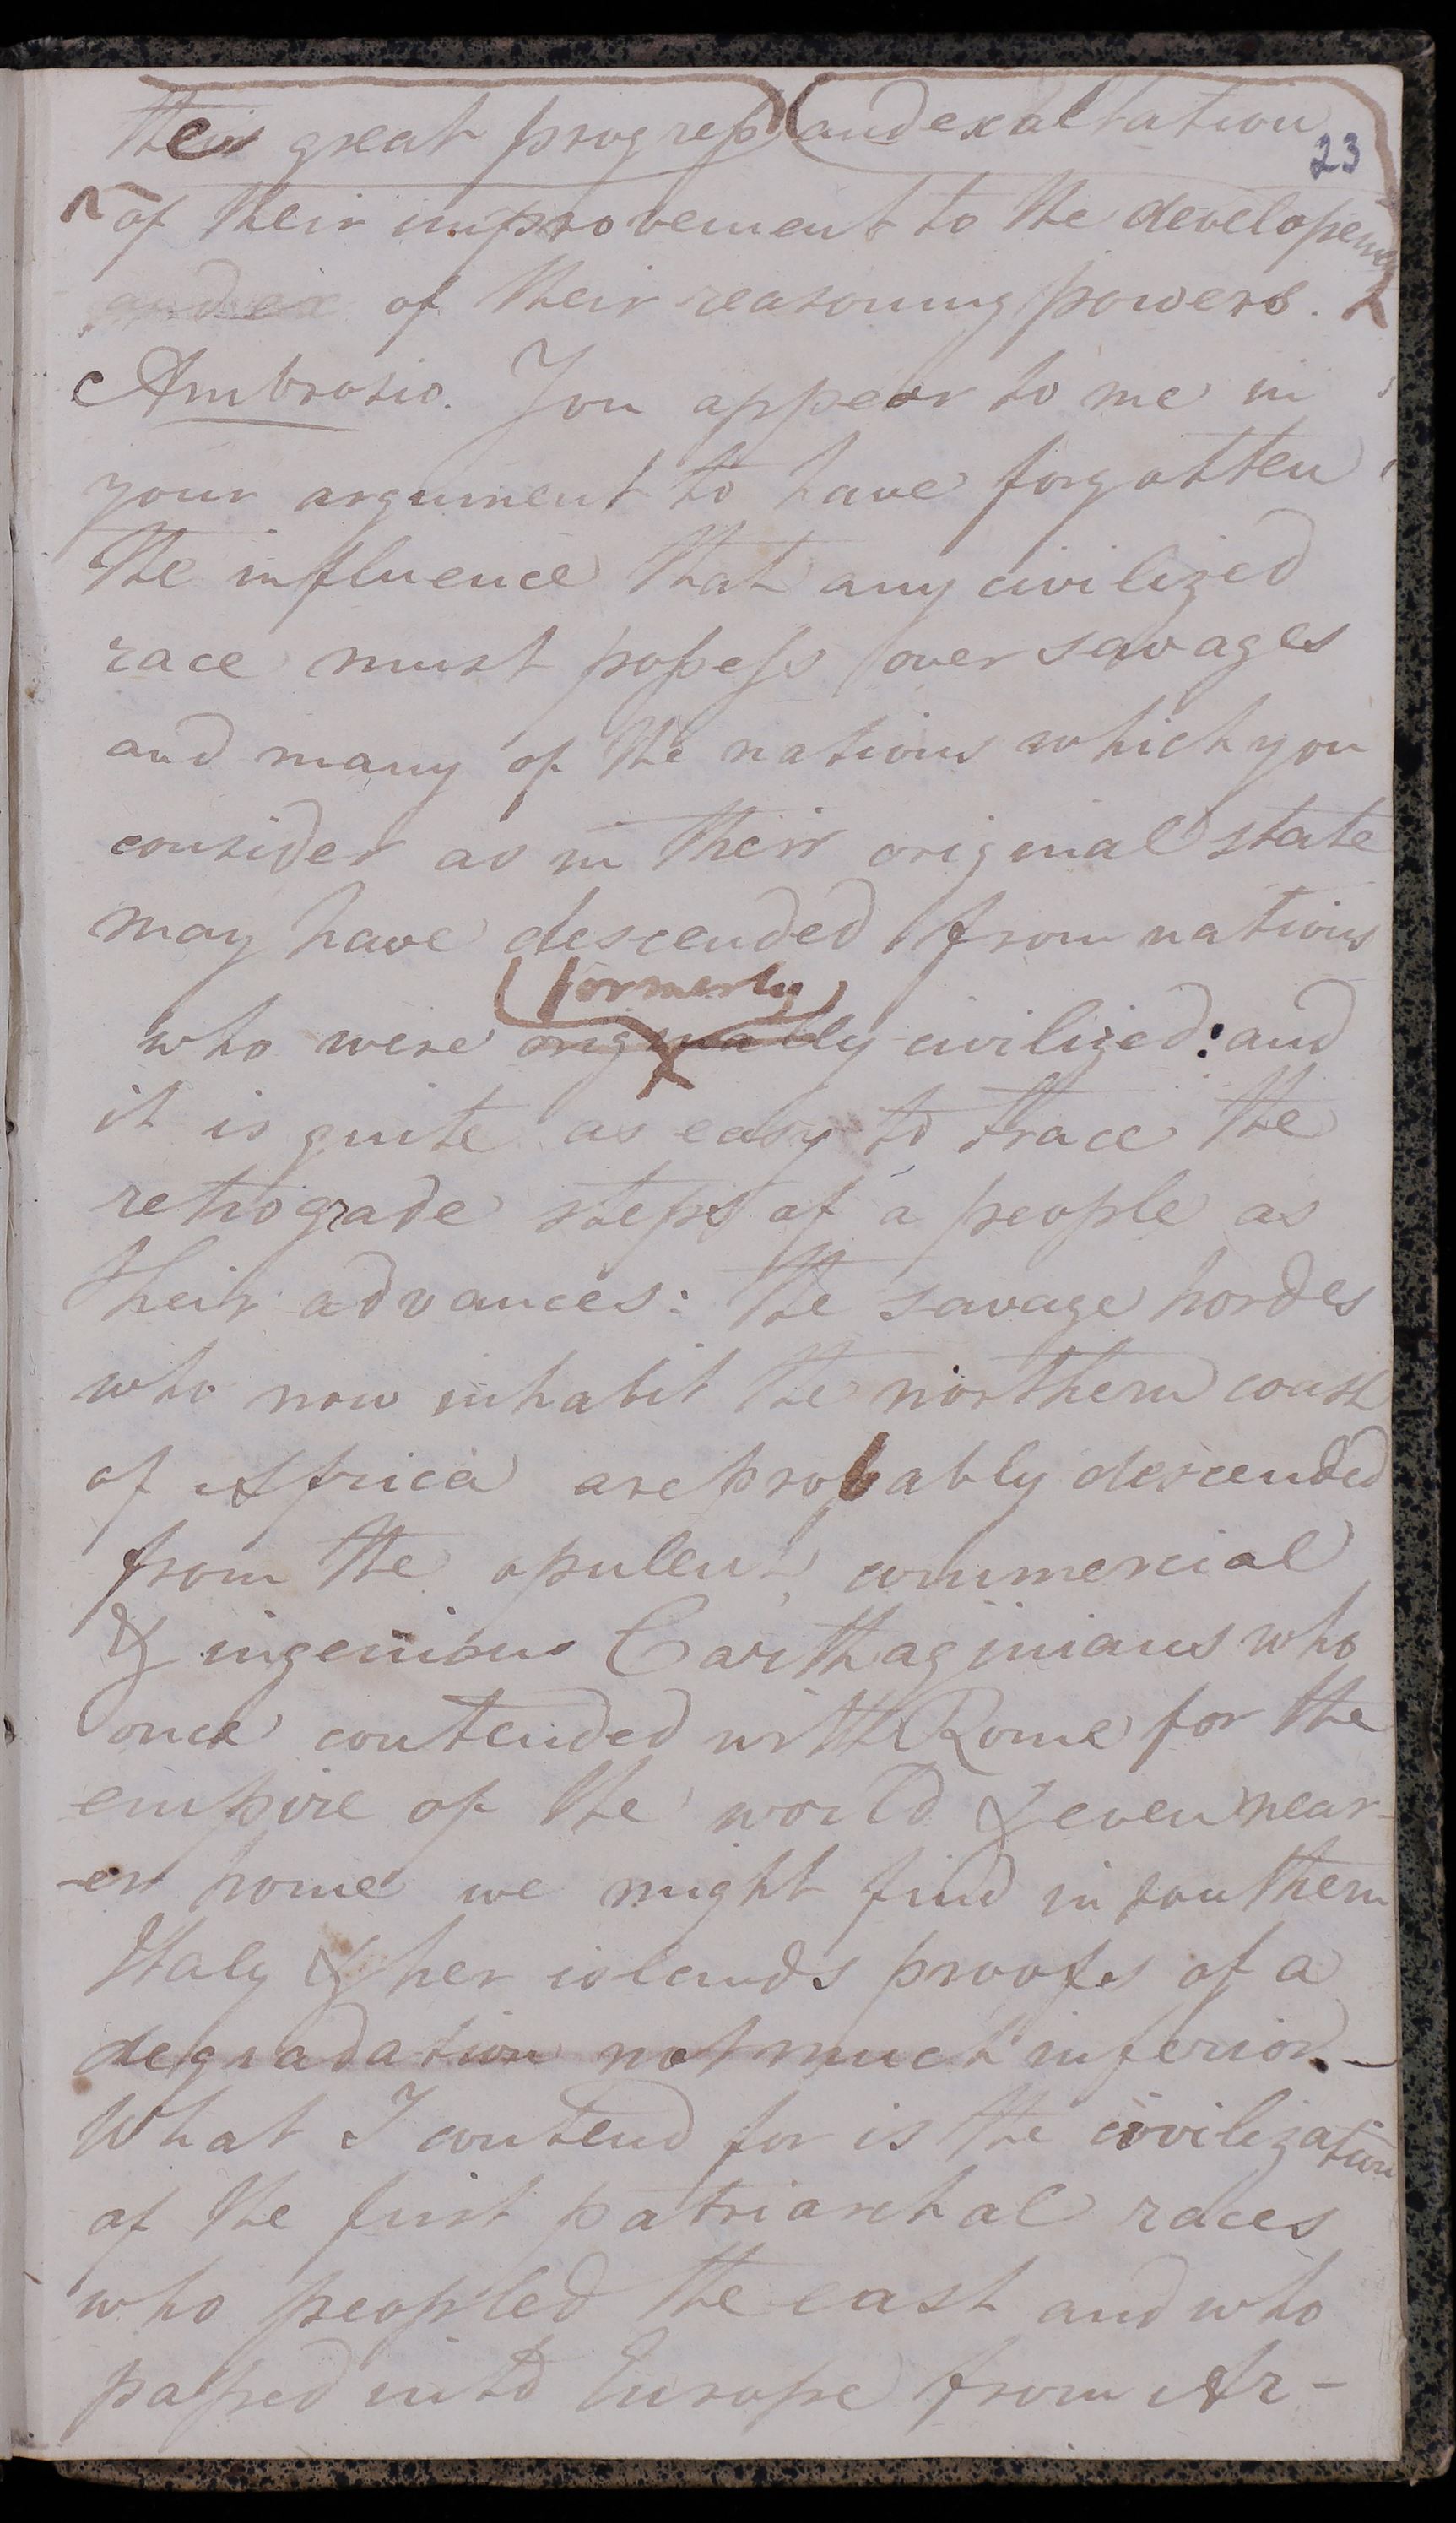 their great progress and exaltation
23
of their improvement to the developement
and ex of their reasoning powers.
Ambrosio. You appear to me in
your argument to have forgotten
the influence that any civilized
race must possess over savages
and many of the nations which you
consider as in their original state
may have descended from nations
formerly
who were originally civilized: and
it is quite as easy to trace the
retrograde steps of a people as
their advances: the savage hordes
who now inhabit the northern coast
of Africa are probably descended
from the opulent, commercial
& ingenious Carthaginians who
once contended with Rome for the
empire of the world & even near-
-er home we might find in southern
Italy & her islands proofs of a
degradation not much inferior. -
What I contend for is the civilization
of the first patriarchal races
who peopled the east and who
passed into Europe from Ar-